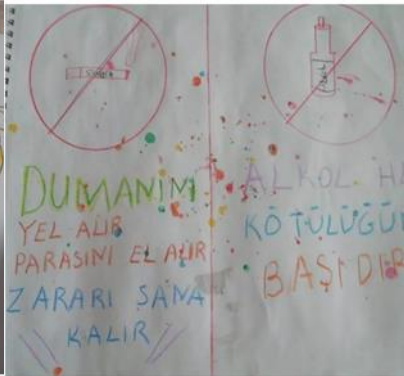 DUMANINI
YEL ALIR
PARASINI EL ALIR
ZARARI SANA
KALIR
ALKOL
KÖTÜLÜĞÜN
BAŞIDIR